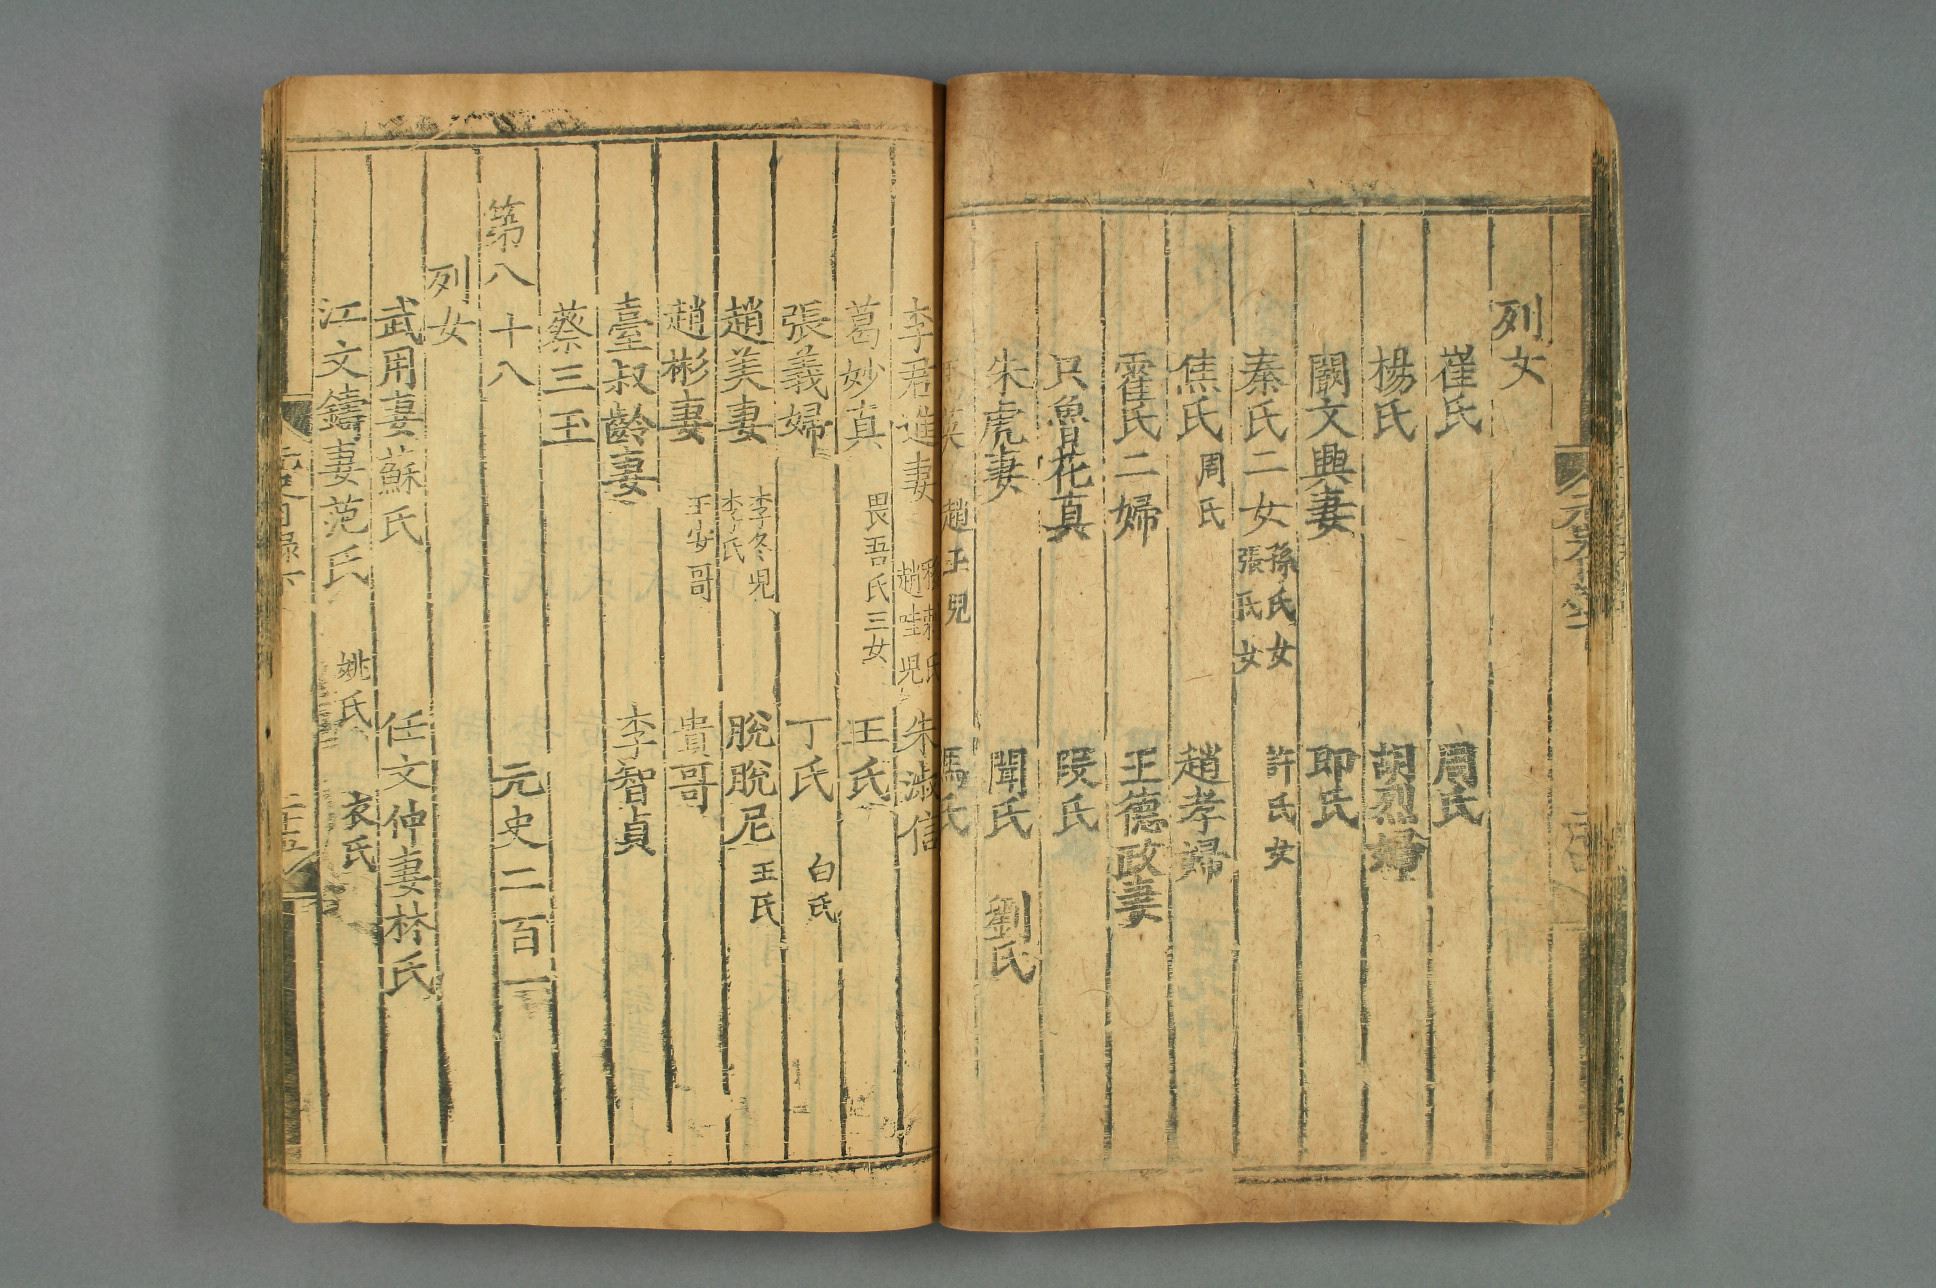 列女
崔氏 周氏
楊氏 胡烈婦
闞文興妻 郎氏
秦氏二女 孫氏女 張氏女 許氏女
焦氏 周氏 趙孝婦
霍氏二婦 王德政妻
只魯花真 段氏
朱虎妻 聞氏 劉氏
馬英 趙玉兒 馮氏
李君進妻 移剌氏 趙哇兒 朱淑信
葛妙真 畏吾氏三女 王氏
張義婦 丁氏 白氏
趙美妻 李冬兒 李氏 脫脫尼 王氏
趙彬妻 王安哥 貴哥
臺叔齡妻 李智貞
蔡三玉
第八十八 元史二百一
列女
武用妻蘇氏 任文仲妻林氏
江文鑄妻范氏 姚氏 衣氏
元史目錄下 二十五